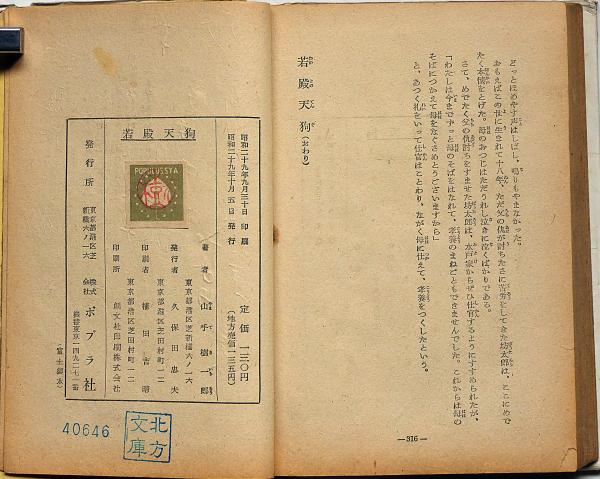 どっとほめやす声はしばし、鳴りもやまなかった。
おもえばこの世に生まれて十八年、ただ父の仇が討ちたさに苦労をしてきた坊太郎は、ここにめで
たく本懐をとげた。母のおつじはただうれし泣きに泣くばかりである。
さて、めでたく父の仇討ちをすませた坊太郎は、水戸家からぜひ仕官するようにすすめられたが、
「わたしは今までずっと母のそばをはなれて、孝養のまねごともできませんでした。これからは母の
そばにつかえて母をなぐさめとうございますから」
と、あつく礼をいって仕官はことわり、ながく母に仕えて、孝養をつくしたという。
若殿天狗(おわり)
―316―
若殿天狗
POPULUSSYA
昭和二十九年九月三十日 印刷
昭和二十九年十月五日 発行
定価 一三〇円
(地方売価一三五円)
著者 山手樹一郎
東京都港区芝新橋六ノ一六
発行者 久保田忠夫
東京都港区芝田村町一ノ二
印刷者 植田吉昭
東京都港区芝田村町一ノ二
印刷所 朗文社印刷株式会社
発行所 東京都港区芝新橋六ノ一六
株式会社 ポプラ社
振替東京一四九二七一番
40646
北方文庫